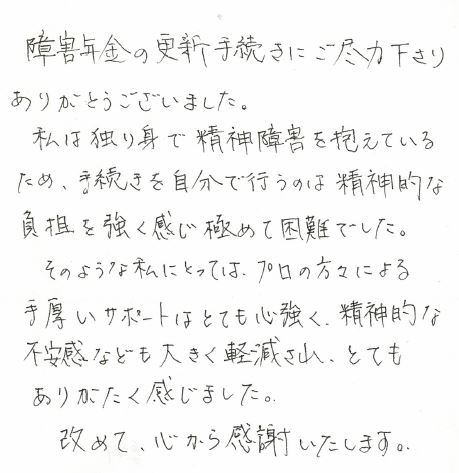 障害年金の更新手続きにご尽力下さり
ありがとうございました。
私は独り身で精神障害を抱えている
ため、手続きを自分で行うのは精神的な
負担を強く感じ極めて困難でした。
そのような私にとっては、プロの方々による
手厚いサポートはとても心強く、精神的な
不安感なども大きく軽減され、とても
ありがたく感じました。
改めて、心から感謝いたします。